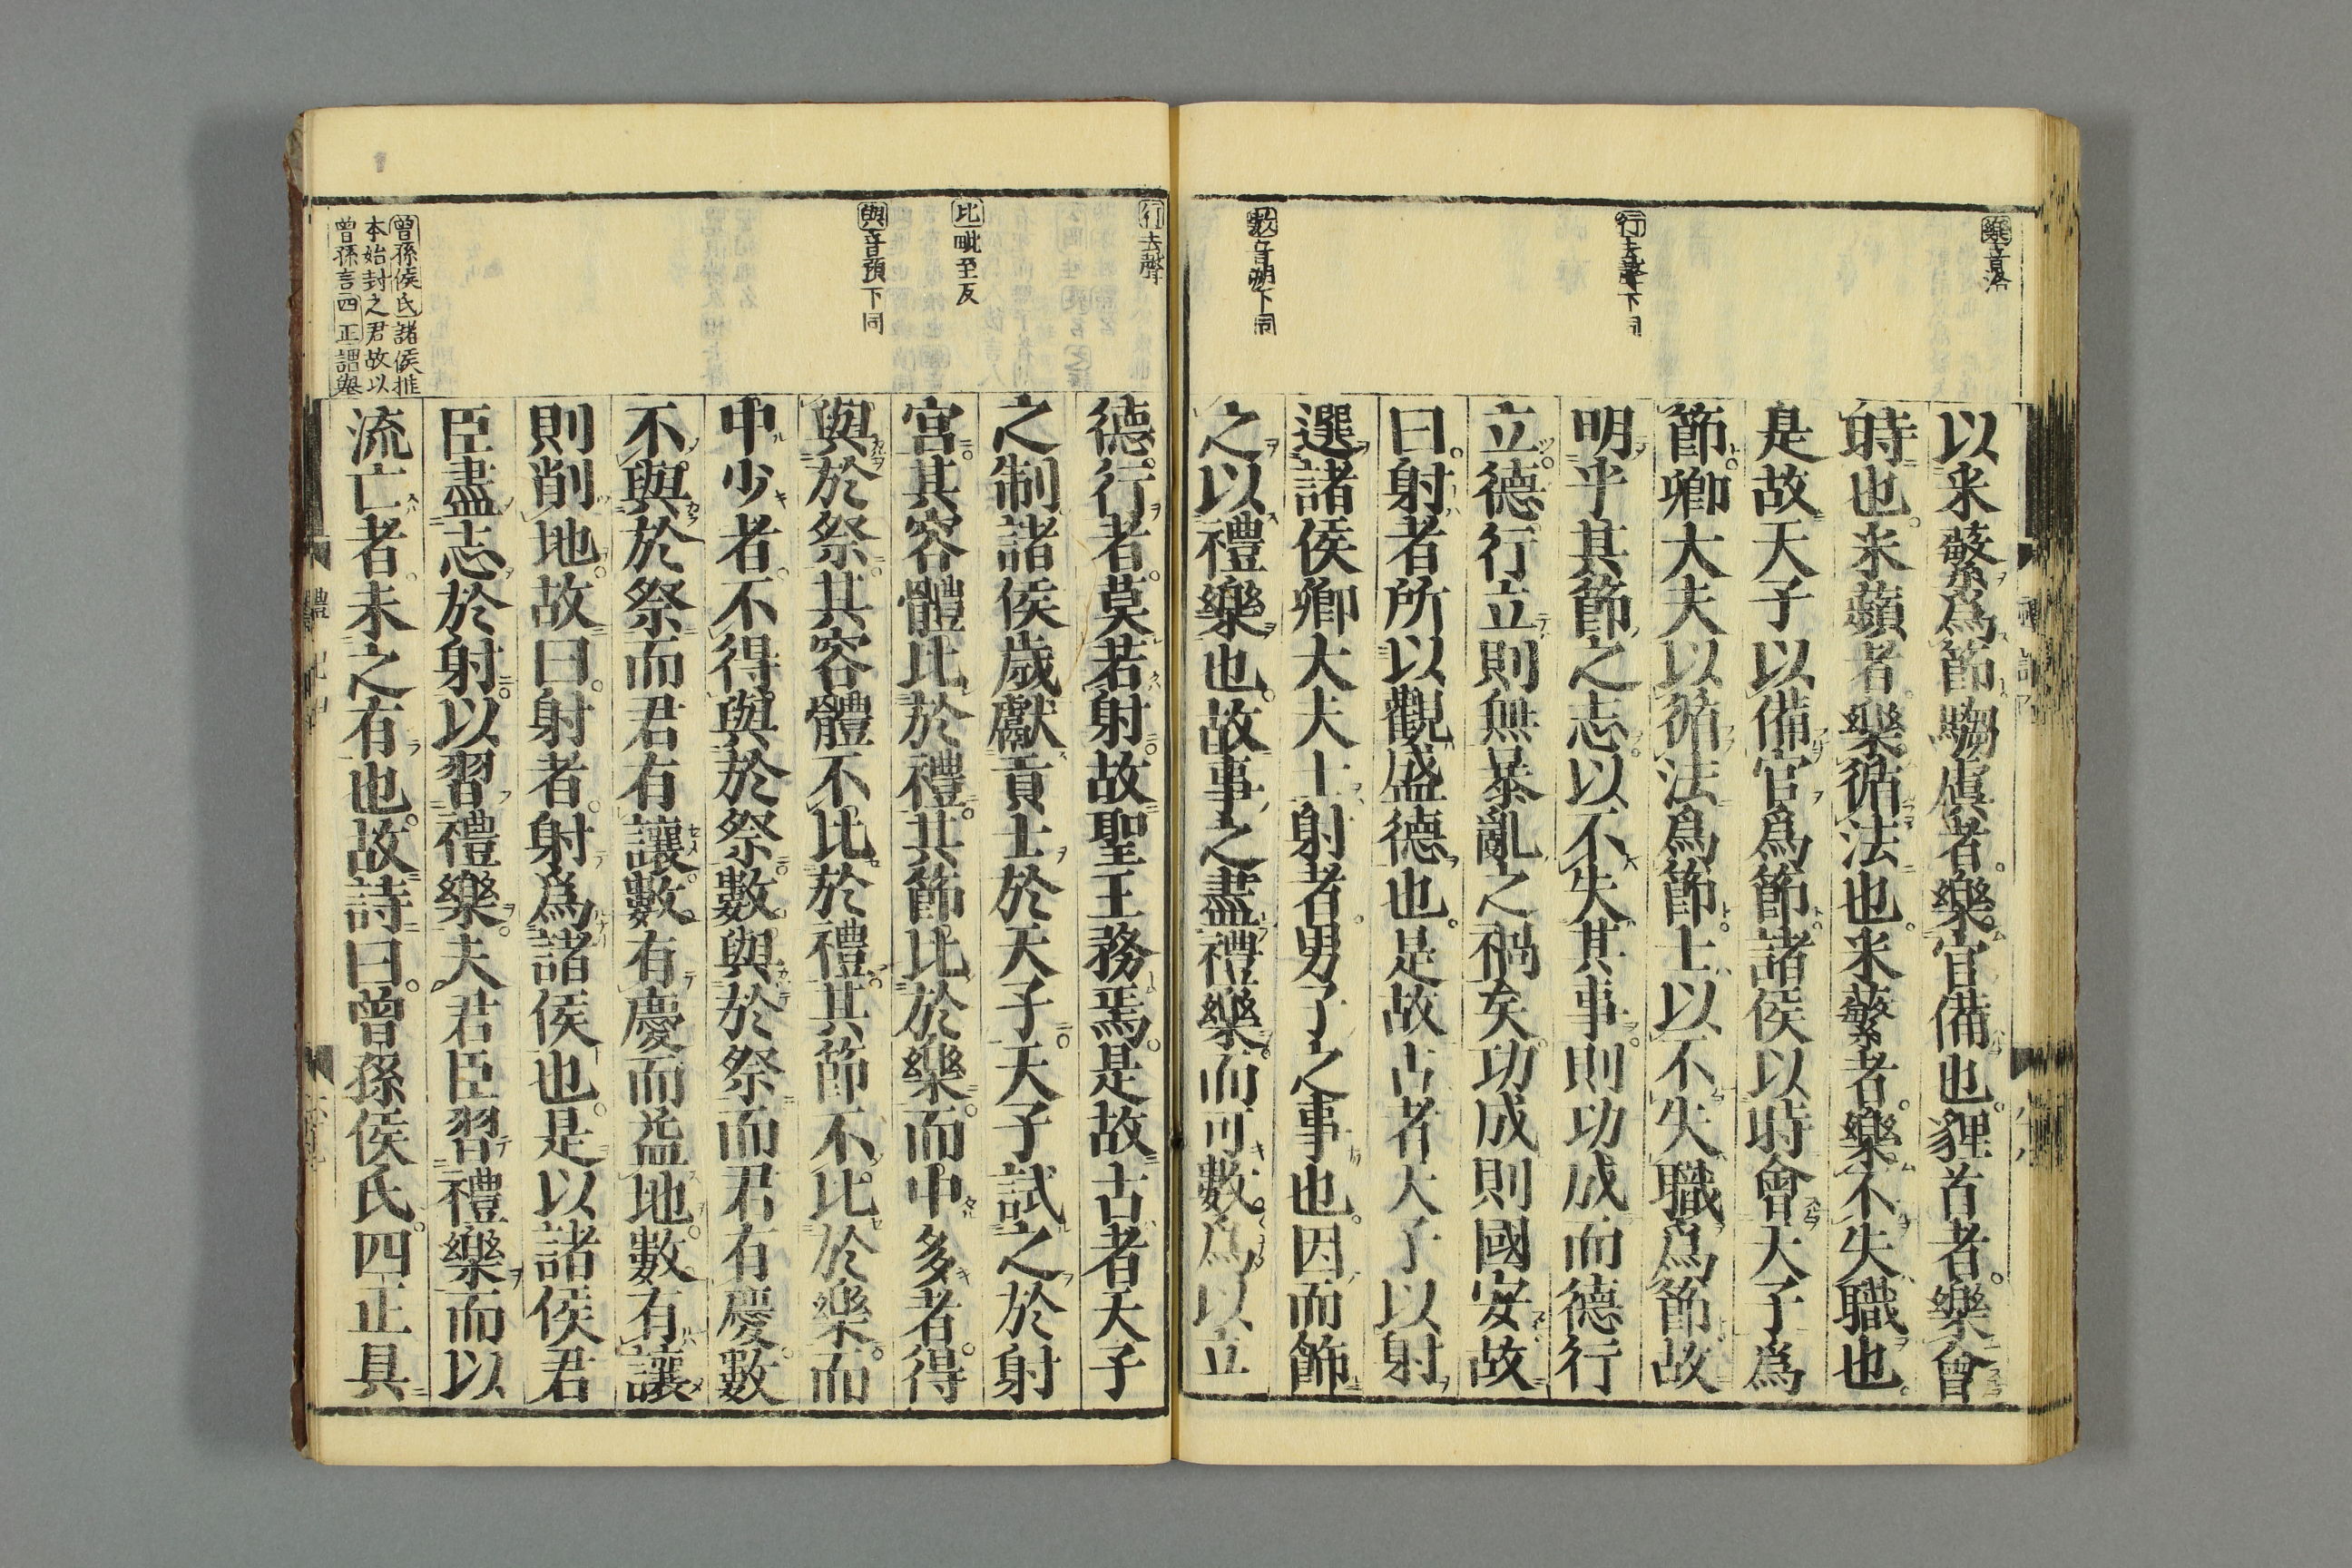 樂音洛
行去聲下同
數音朔下同
以采蘩爲節騶虞者樂官備也貍首者樂會
時也采蘋者樂循法也采蘩者樂不失職也
是故天子以備官爲節諸侯以時會天子爲
節卿大夫以循法爲節士以不失職爲節故
明乎其節之志以不失其事則功成而德行
立德行立則無暴亂之禍矣功成則國安故
曰射者所以觀盛德也是故古者天子以射
選諸侯卿大夫士射者男子之事也因而飾
之以禮樂也故事之盡禮樂而可數爲以立
行去聲
比毗至反
與音預下同
曾孫侯氏諸侯推
本始封之君故以
曾孫言四正謂舉
德行者莫若射故聖王務焉是故古者天子
之制諸侯歲獻貢士於天子天子試之於射
宮其容體比於禮其節比於樂而中多者得
與於祭其容體不比於禮其節不比於樂而
中少者不得與於祭數與於祭而君有慶數
不與於祭而君有讓數有慶而益地數有讓
則削地故曰射者射爲諸侯也是以諸侯君
臣盡志於射以習禮樂夫君臣習禮樂而以
流亡者未之有也故詩曰曾孫侯氏四正具